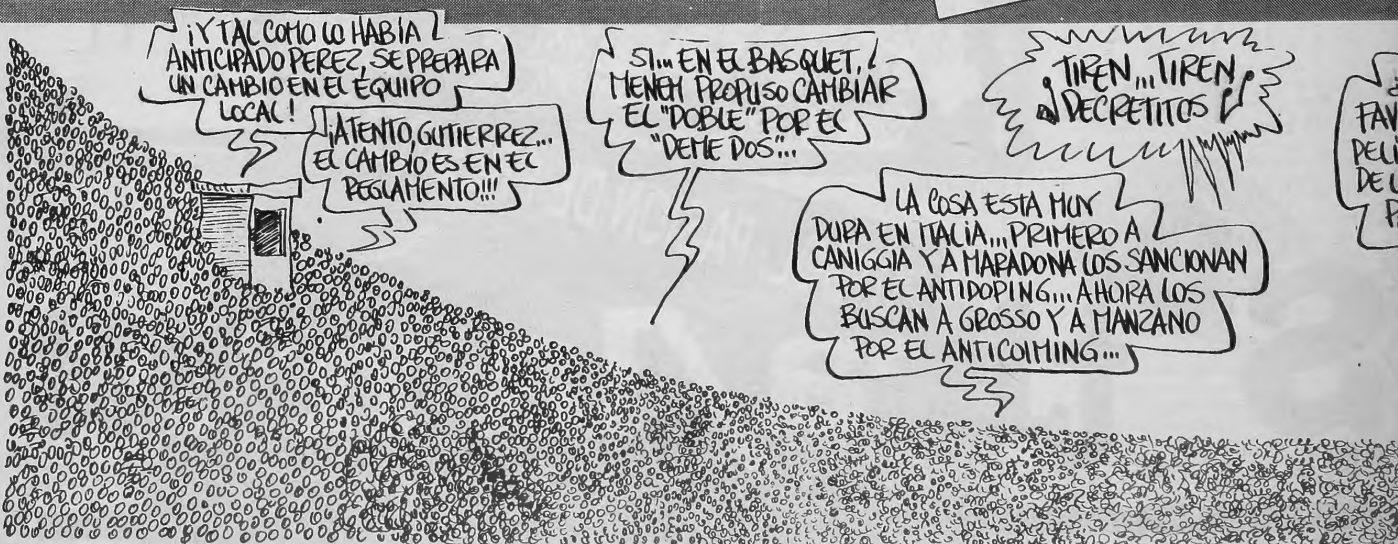 ¡Y TAL COMO LO HABÍA
ANTICIPADO PEREZ, SE PREPARA
UN CAMBIO EN EL EQUIPO
LOCAL!
¡ATENTO, GUTIERREZ...
EL CAMBIO ES EN EL
REGLAMENTO!!!
SI... EN EL BASQUET,
MENEM PROPUSO CAMBIAR
EL "DOBLE" POR EL
"DEME DOS"...
¡TIREN... TIREN
DECRETITOS!
LA COSA ESTA MUY
DURA EN ITALIA... PRIMERO A
CANIGGIA Y A MARADONA LOS SANCIONAN
POR EL ANTIDOPING... AHORA LOS
BUSCAN A GROSSO Y A MANZANO
POR EL ANTICOIMING...
FAV
PELI
DE L